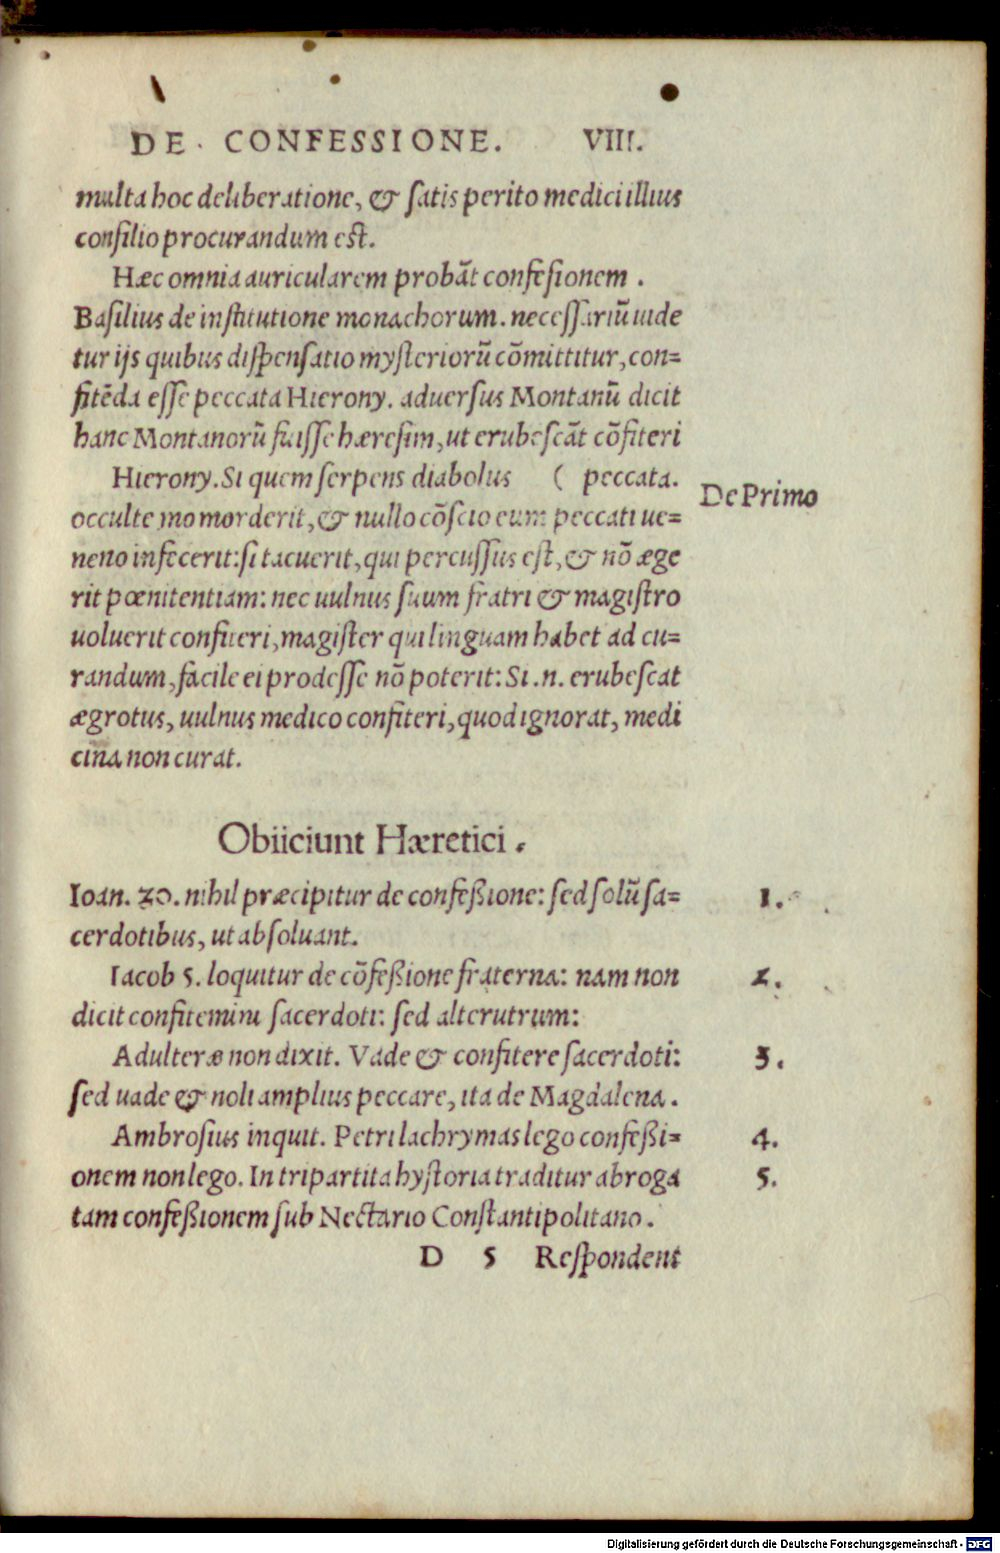 DE · CONFESSIONE. VIII.
multa hoc deliberatione, & ſatis perito medici illius
conſilio procurandum eſt.
Hæc omnia auricularem probãt confeſionem .
Baſilius de inſtitutione monachorum. neceſſariũ uide
tur ijs quibus diſpenſatio myſteriorũ cõmittitur, con=
fitẽda eſſe peccata Hierony. aduerſus Montanũ dicit
hanc Montanorũ fuiſſe hæreſim, ut erubeſcãt cõfiteri
Hierony. Si quem ſerpens diabolus ( peccata.
De Primo
occulte momorderit, & nullo cõſcio eum peccati ue=
neno infecerit: ſi tacuerit, qui percuſſus eſt, & nõ æge
rit pœnitentiam: nec uulnus ſuum fratri & magiſtro
uoluerit confiteri, magiſter qui linguam habet ad cu=
randum, facile ei prodeſſe nõ poterit: Si .n. erubeſcat
ægrotus, uulnus medico confiteri, quod ignorat, medi
cina non curat.
Obiiciunt Hæretici .
Ioan. 20. nihil præcipitur de confeßione: ſed ſolũ ſa= 1.
cerdotibus, ut abſoluant.
Iacob 5. loquitur de cõfeßione fraterna: nam non 2.
dicit confitemini ſacerdoti: ſed alterutrum:
Adulteræ non dixit. Vade & confitere ſacerdoti: 3.
ſed uade & noli amplius peccare, ita de Magdalena .
Ambroſius inquit. Petri lachrymas lego confeßi= 4.
onem non lego. In tripartita hyſtoria traditur abroga 5.
tam confeßionem ſub Nectario Conſtantipolitano .
D 5 Reſpondent
Digitalisierung gefördert durch die Deutsche Forschungsgemeinschaft - DFG